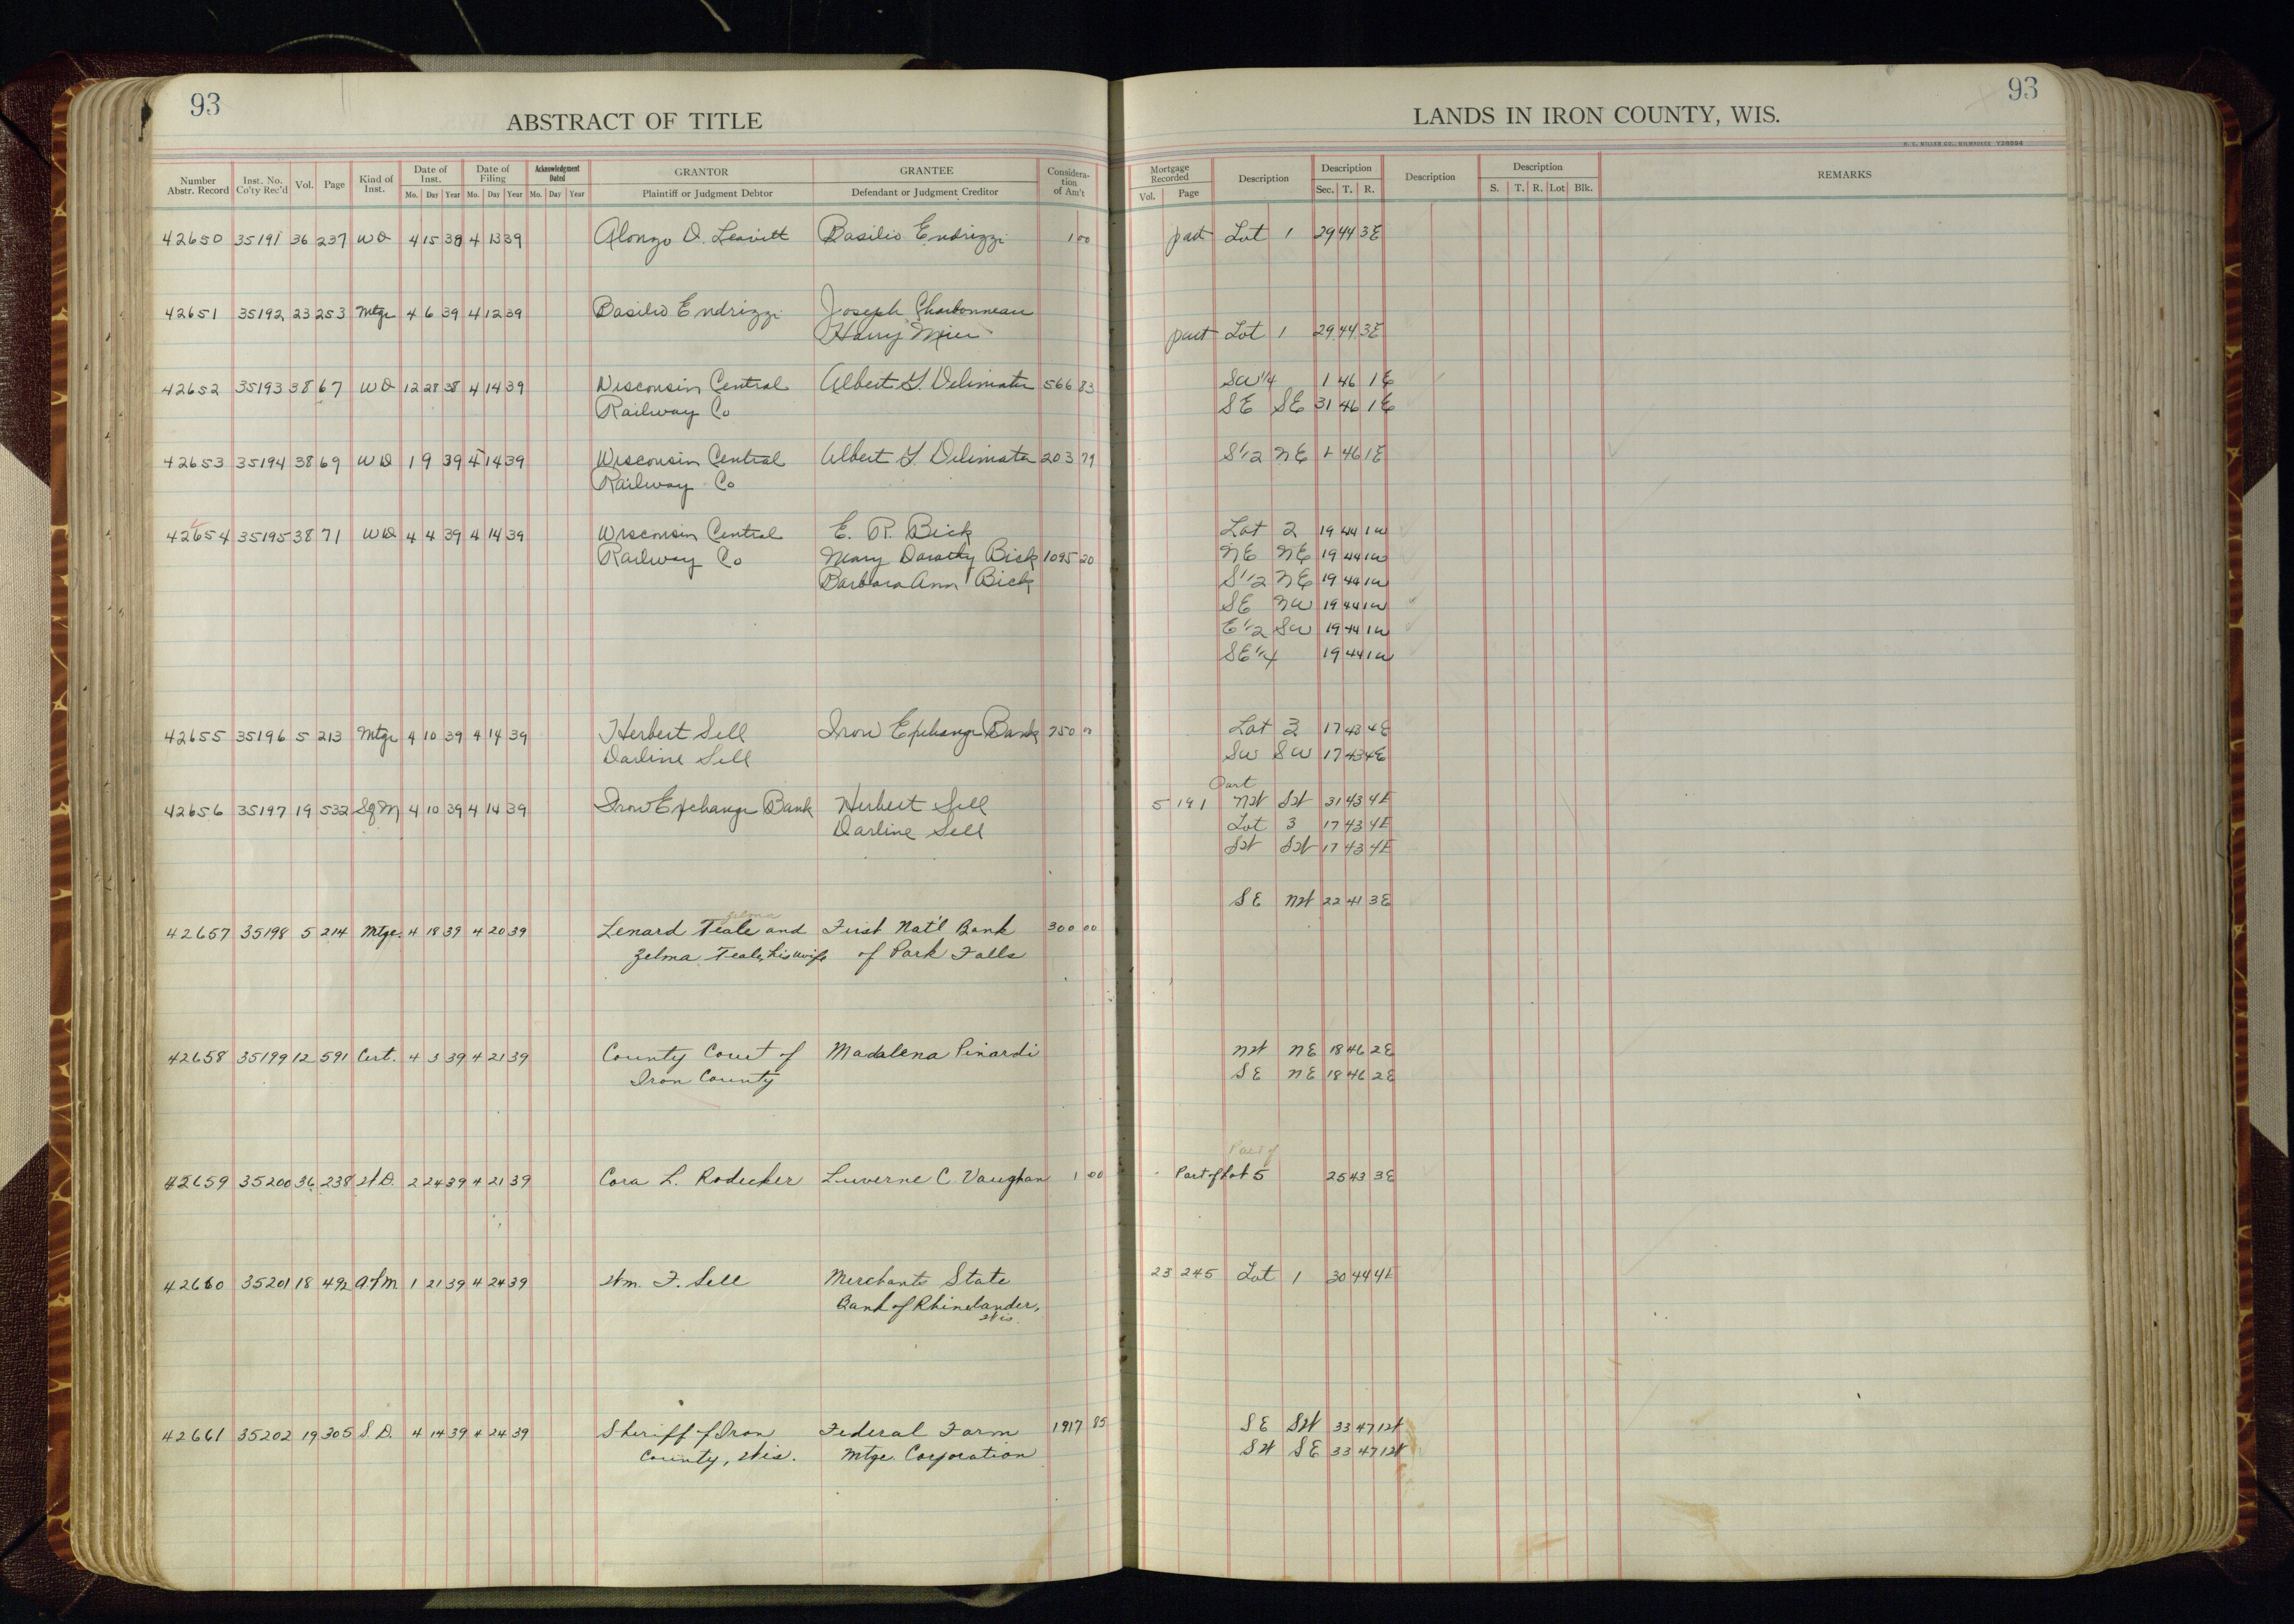 93
ABSTRACT OF TITLE
LANDS IN IRON COUNTY, WIS.
93
H. C. MILLER CO., MILWAUKEE Y28594
Number Abstr. Record Inst. No. Co'ty Rec'd Vol. Page Kind of Inst. Date of Inst. Mo. Day Year Date of Filing Mo. Day Year Acknowledgment Dated Mo. Day Year GRANTOR Plaintiff or Judgment Debtor GRANTEE Defendant or Judgment Creditor Considera-tion of Am't Mortgage Recorded Vol. Page Description Description Sec. T. R. Description Description S. T. R. Lot Blk. REMARKS
42650 35191 36 237 WD 4 15 39 4 13 39 Alonzo D. Leavitt Basilio Endrizzi 1 00 part Lot 1 29 44 3E
42651 35192 23 253 Mtge 4 6 39 4 12 39 Basilio Endrizzi Joseph Charbonneau
Harry Meier part Lot 1 29 44 3E
42652 35193 38 67 WD 12 28 38 4 14 39 Wisconsin Central Albert G. Delimata 566 83 SW 1/4 1 46 1E
Railway Co SE SE 31 46 1E
42653 35194 38 69 WD 1 9 39 4 14 39 Wisconsin Central Albert G. Delimata 203 79 S 1/2 NE 1 46 1E
Railway Co
42654 35195 38 71 WD 4 4 39 4 14 39 Wisconsin Central E. R. Bick Lot 2 19 44 1W
Railway Co Mary Dorothy Bick 1095 20 NE NE 19 44 1W
Barbara Ann Bick S 1/2 NE 19 44 1W
SE NW 19 44 1W
E 1/2 SW 19 44 1W
SE 1/4 19 44 1W
42655 35196 5 213 Mtge 4 10 39 4 14 39 Herbert Sell Iron Exchange Bank 750 Lot 3 17 43 4E
Darline Sell SW SW 17 43 4E
Part
42656 35197 19 532 Sq M 4 10 39 4 14 39 Iron Exchange Bank Herbert Sell 5 191 NW SW 31 43 4E
Darline Sell Lot 3 17 43 4E
SW SW 17 43 4E
SE NW 22 41 3E
Zelma
42657 35198 5 214 Mtge. 4 18 39 4 20 39 Lenard Teale and First Nat'l Bank 300 00
Zelma Teale, his wife of Park Falls
42658 35199 12 591 Cert. 4 3 39 4 21 39 County Court of Madalena Pinardi NW NE 18 46 2E
Iron County SE NE 18 46 2E
Part of
42659 35200 36 238 W.D. 2 24 39 4 21 39 Cora L. Rodecker Luverne C. Vaughan 1 00 Part of Lot 5 25 43 3E
42660 35201 18 492 AfM 1 21 39 4 24 39 Wm. F. Sell Merchants State 23 245 Lot 1 30 44 4E
Bank of Rhinelander,
Wis.
42661 35202 19 305 S.D. 4 14 39 4 24 39 Sheriff of Iron Federal Farm 1917 85 SE SW 33 47 1W
County, Wis. Mtge. Corporation SW SE 33 47 1W